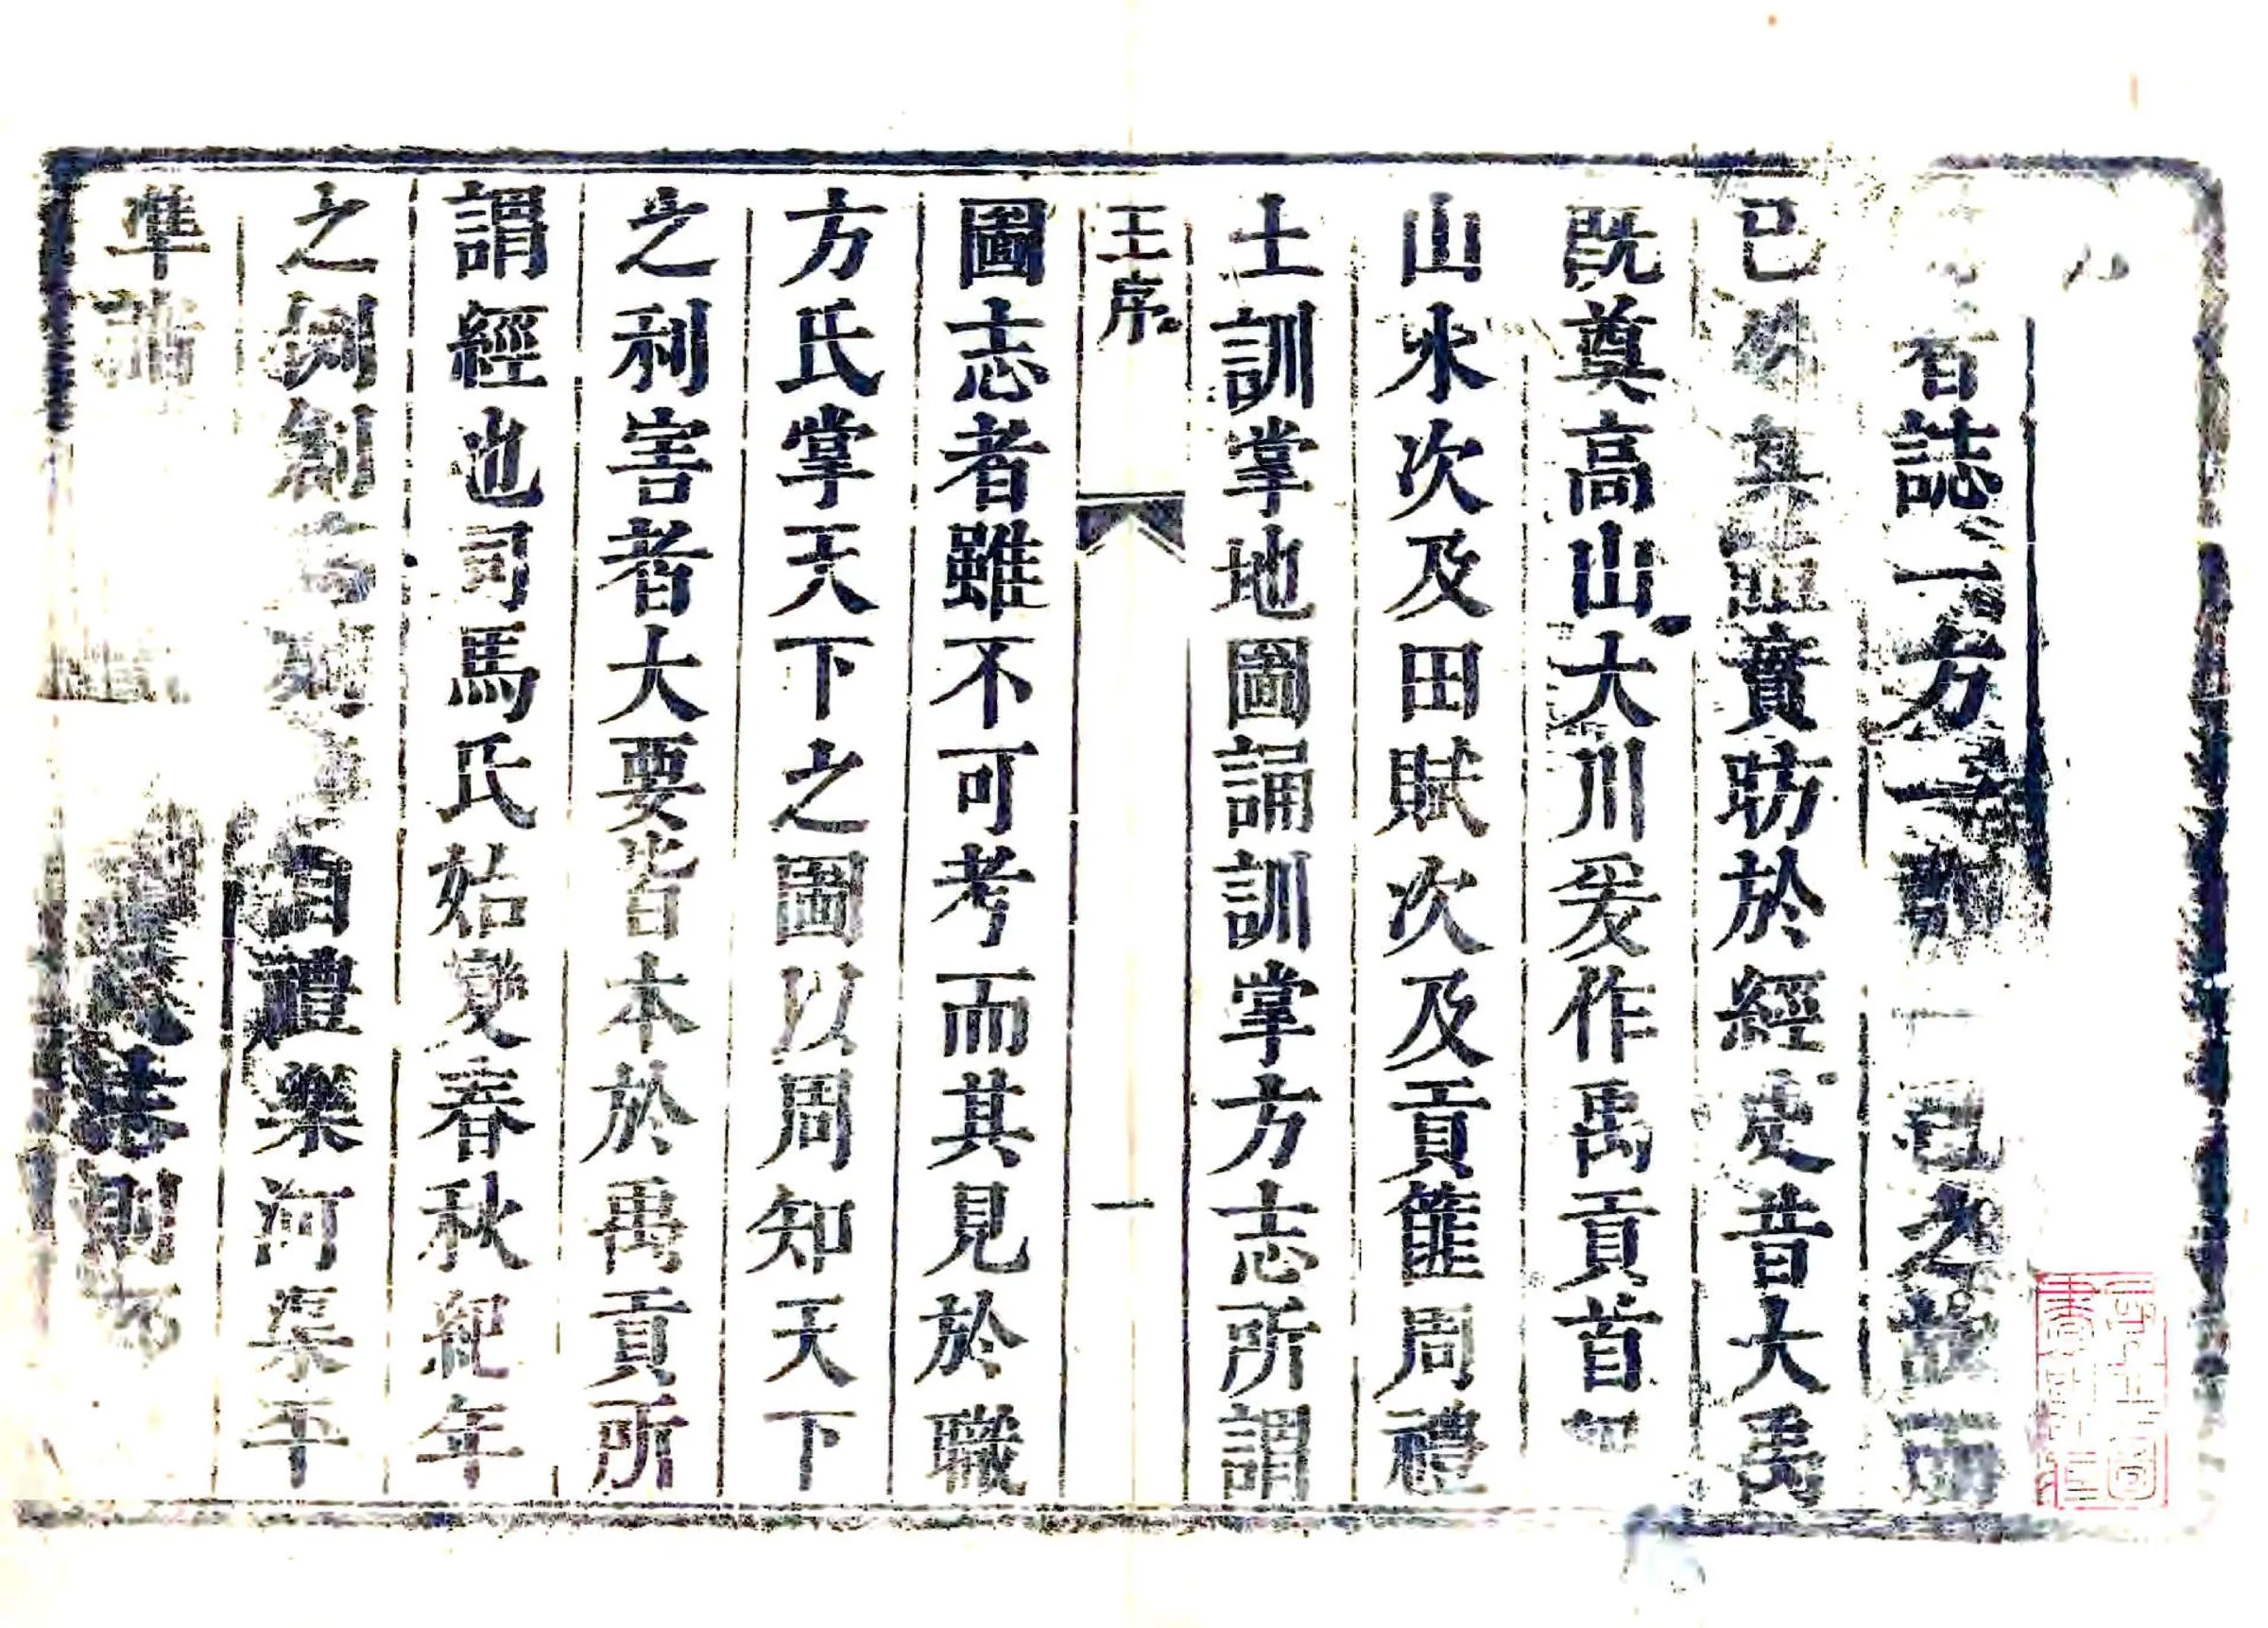 誌一方一之
已其實昉於經史昔大禹
既奠高山大川爰作禹貢首
山水次及田賦次及貢篚周禮
土訓掌地圖誦訓掌方志所謂
王序 一
圖志者雖不可考而其見於職
方氏掌天下之圖以周知天下
之利害者大要皆本於禹貢所
謂經也司馬氏始變春秋紀年
之例創自禮樂河渠平
準諸則